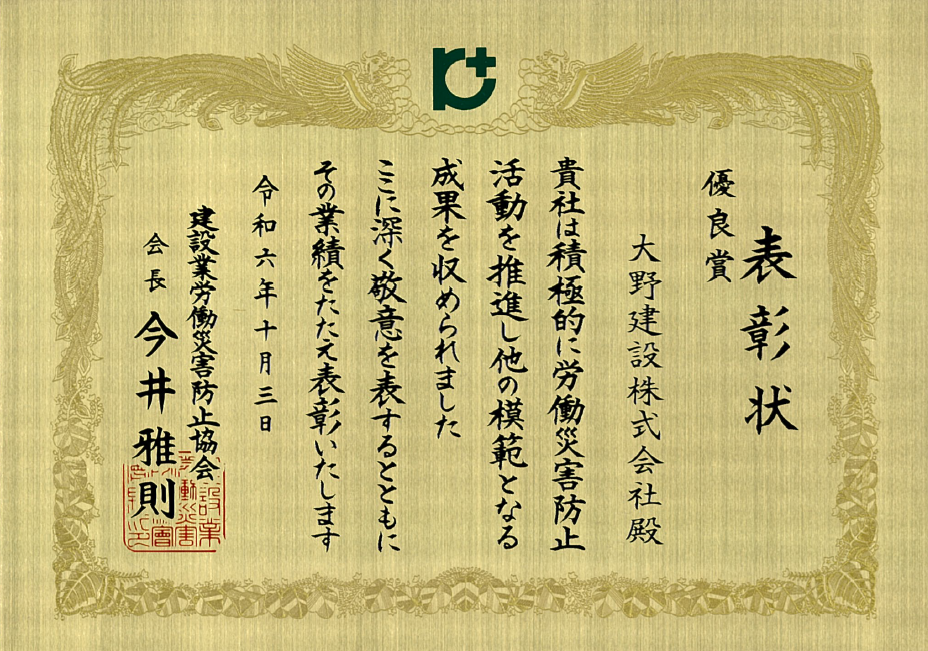 表彰状
優良賞
大野建設株式会社殿
貴社は積極的に労働災害防止
活動を推進し他の模範となる
成果を収められました
ここに深く敬意を表するとともに
その業績をたたえ表彰いたします
令和六年十月三日
建設業労働災害防止協会
会長 今井雅則